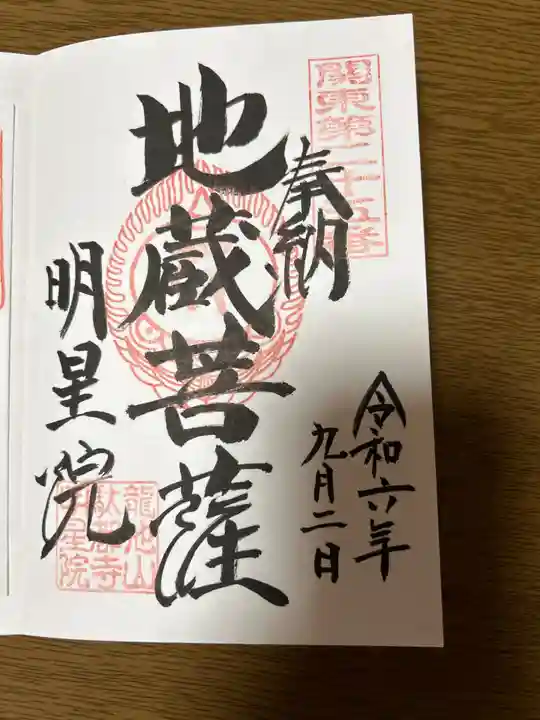 関東第二十五番
奉納
令和六年
九月二日
地蔵菩薩
明星院
龍池山
明星院